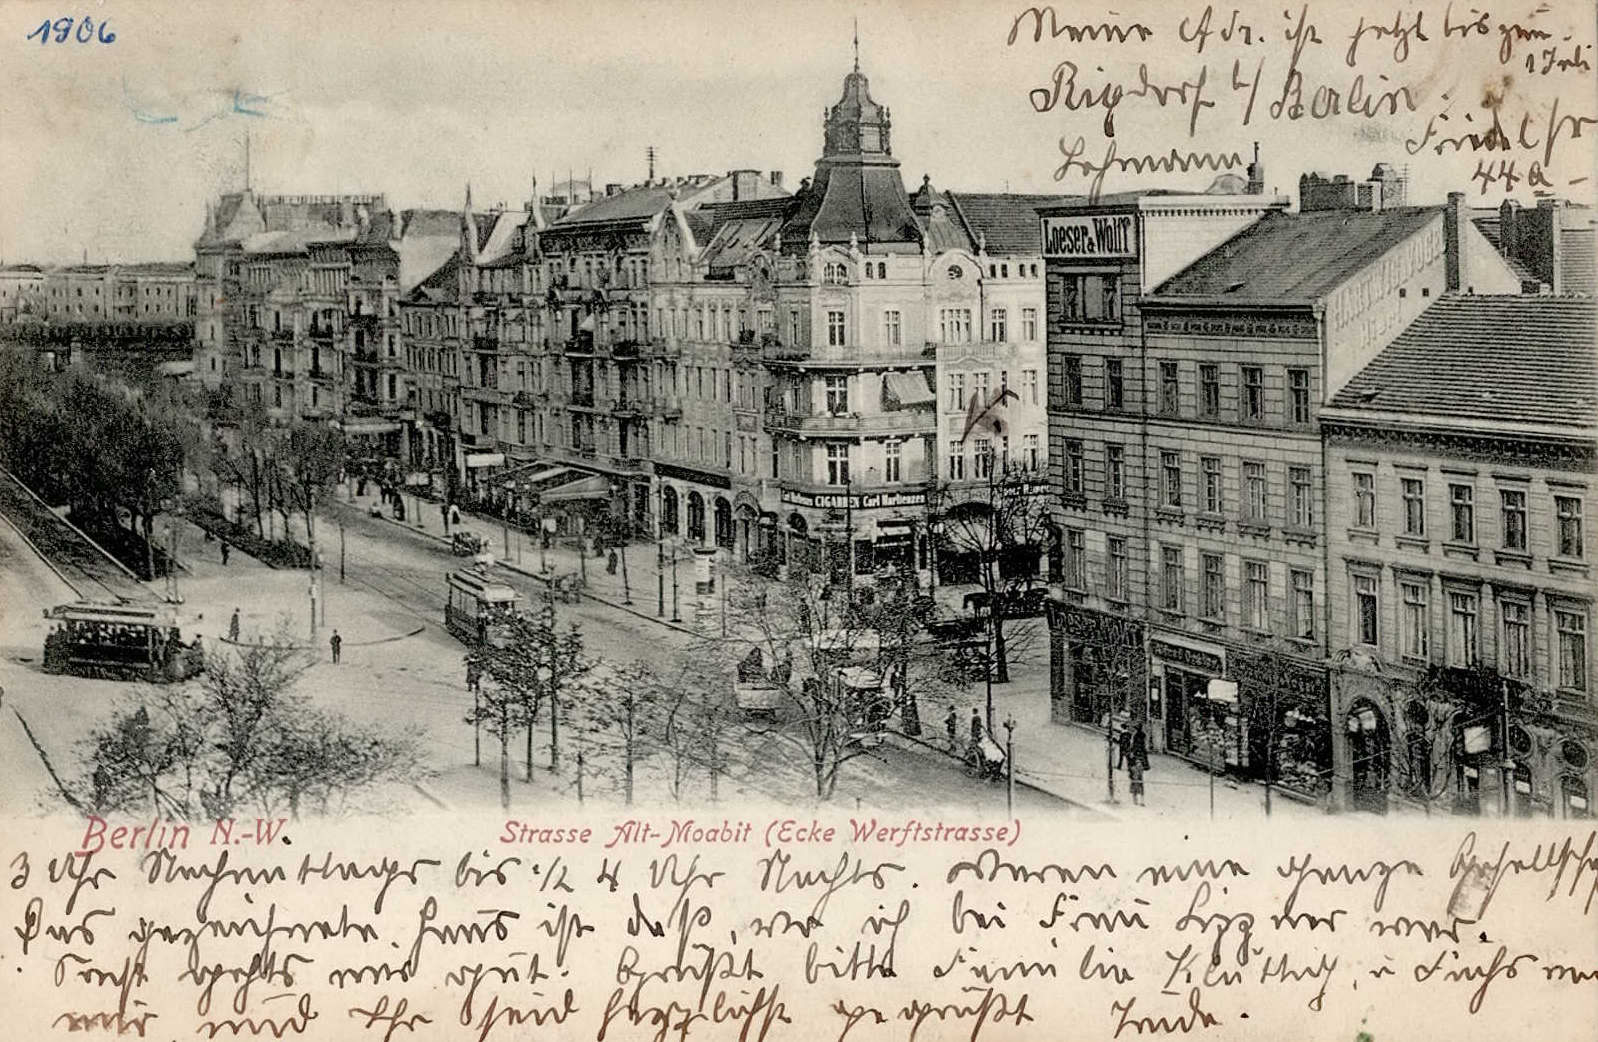 1906
Meine Adr. ist jetzt bis zum
1 Juli
Rixdorf b/ Berlin.
Friedelstr
Lehmann
44a
Loeser & Wolff
CIGARREN Carl Martienzen
Berlin N.-W.
Strasse Alt-Moabit (Ecke Werftstrasse)
3 Uhr Nachmittags bis 1/2 4 Uhr Nachts. Waren eine ganze Gesellschaft
Das gezeichnete Haus ist daß, wo ich bei Frau war.
Sonst gehts mir gut. Grüßt bitte Familie u Fuchs von
mir und Ihr seid herzlichst gegrüßt